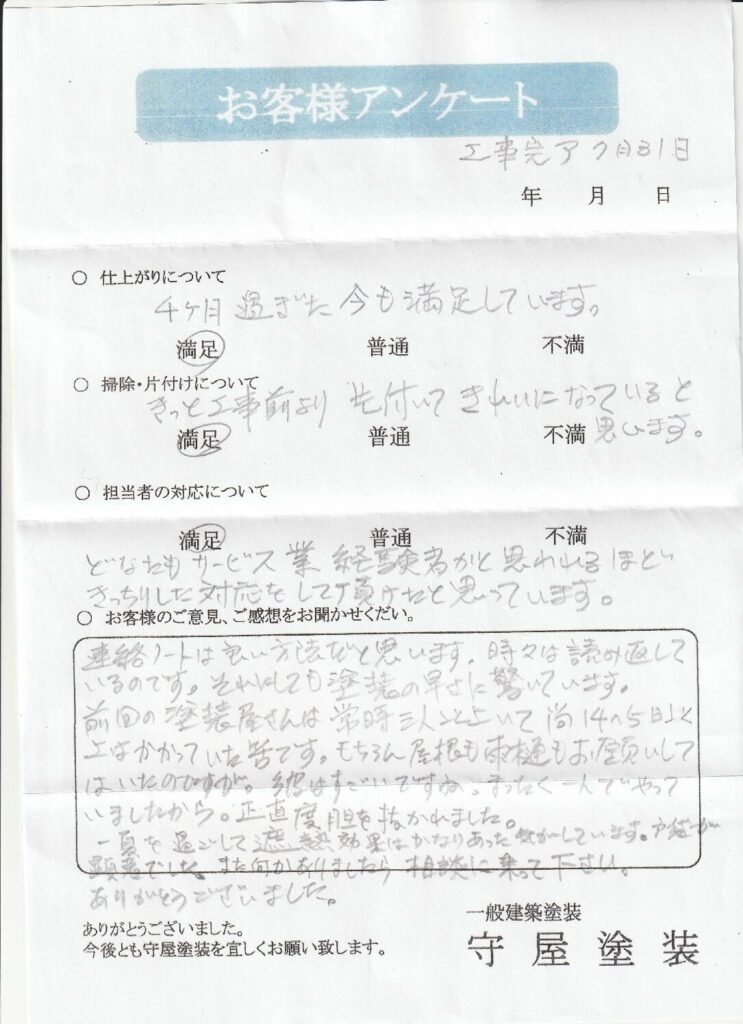 お客様アンケート
工事完了 7月31日
年 月 日
○ 仕上がりについて
4ケ月 過ぎた 今も満足しています。
満足 普通 不満
○ 掃除・片付けについて
きっと工事前より 片付いて きれいになっていると
思います。
満足 普通 不満
○ 担当者の対応について
満足 普通 不満
どなたもサービス業 経験者かと思われるほど
きっちりした対応をして頂けたと思っています。
○ お客様のご意見、ご感想をお聞かせくだい。
連絡ノートは良い方法だと思います。時々は読み返して
いるのです。それにしても塗装の早さに驚いています。
前回の塗装屋さんは常時三人と いて 尚14〜5日以
上はかかっていた筈です。もちろん屋根も雨樋もお願いして
はいたのですが。 はすごいですね。まったく一人でやって
いましたから。正直度胆を抜かれました。
一夏を過ごして遮熱効果はかなりあった気がしています。 が
顕著でした。また何かありましたら 相談に乗って下さい。
ありがとうございました。
ありがとうございました。
今後とも守屋塗装を宜しくお願い致します。
一般建築塗装
守屋塗装